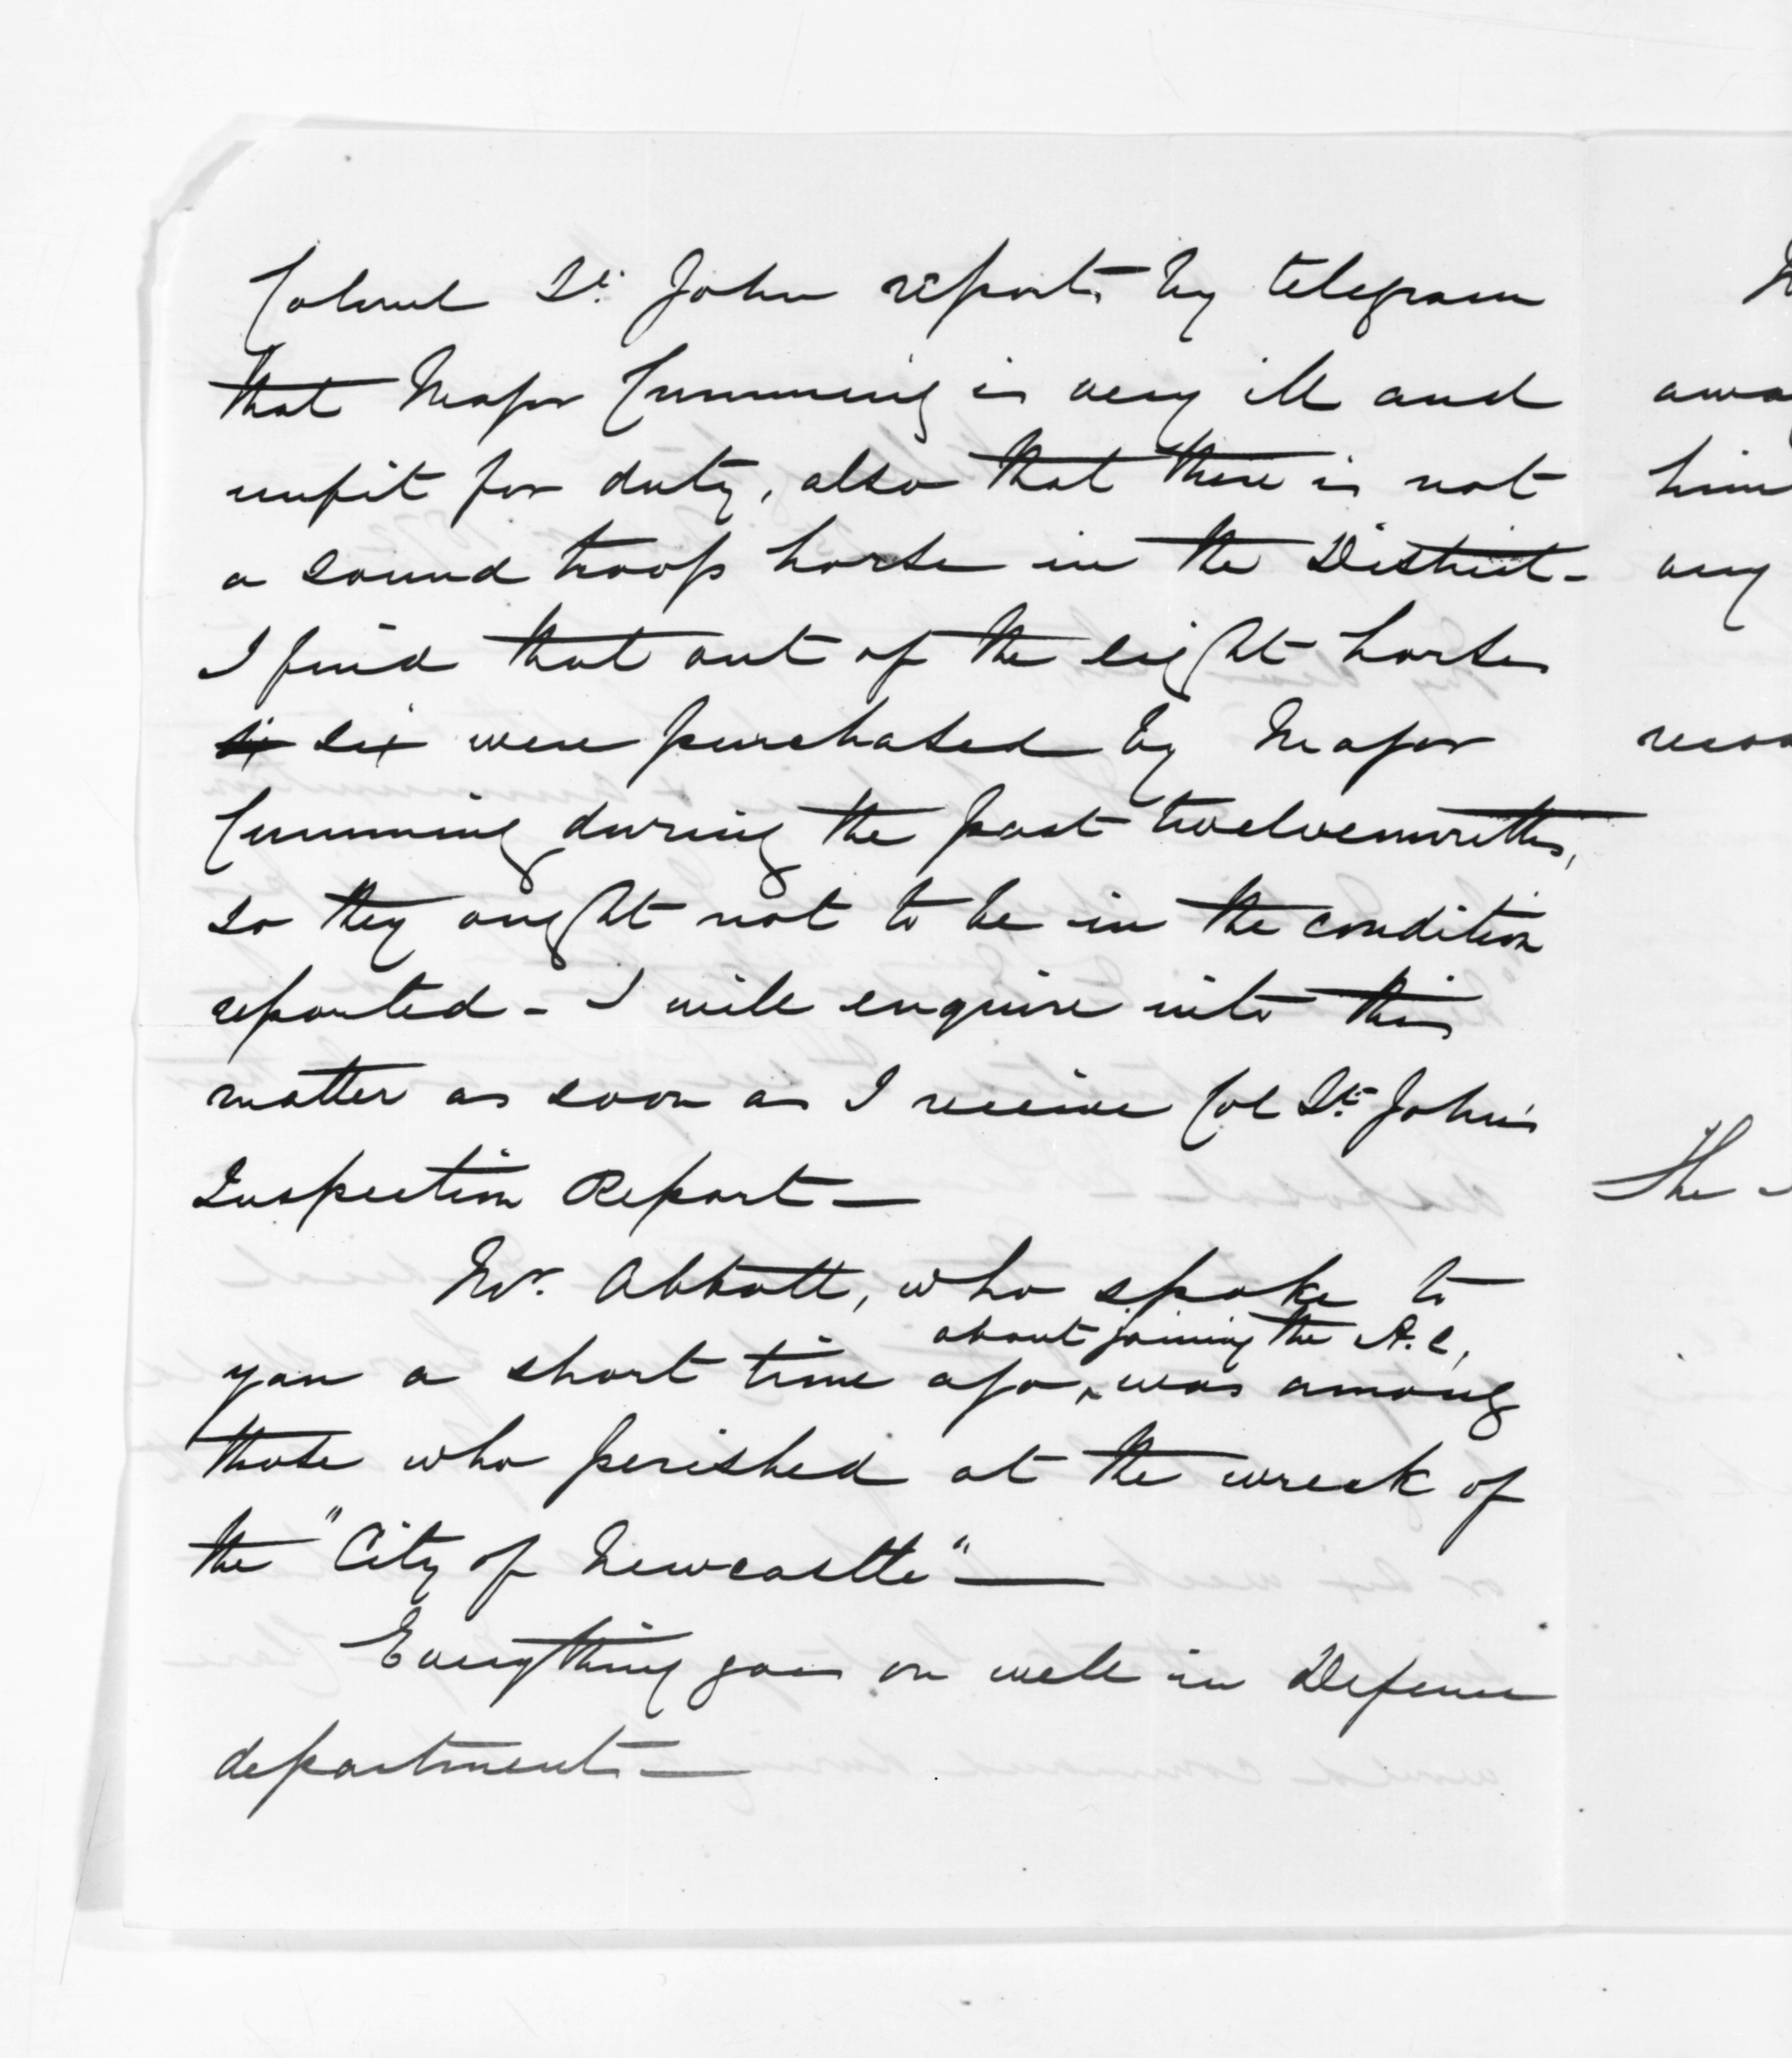 Colonel St. John reports by telegram
that Major Cumming is very ill and
unfit for duty, also that there is not
a sound troop horse in the District -
I find that out of the eight horses
six were purchased by Major
Cumming during the past twelvemonths,
so they ought not to be in the condition
reported - I will enquire into this
matter as soon as I receive Col St. John's
Inspection Report —
Mr. Abbott, who spoke to
about joining the A.C,
you a short time ago, was among
those who perished at the wreck of
the "City of Newcastle" —
Everything goes on well in Defence
department —
him
any
The